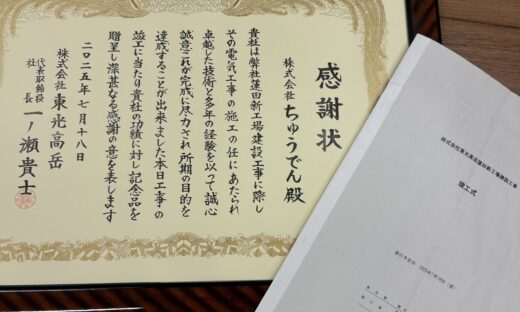 感謝状
株式会社ちゅうでん殿
貴社は弊社蓮田新工場建設工事に際し
その電気工事の施工の任にあたられ
卓越した技術と多年の経験を以って誠心
誠意これが完成に尽力され所期の目的を
達成することが出来ました本日工事の
竣工に当たり貴社の功績に対し記念品を
贈呈し深甚なる感謝の意を表します
二〇二五年七月十八日
株式会社東光高岳
代表取締役
社長 一ノ瀬貴士
株式会社東光高岳蓮田新工場建設工事
竣工式